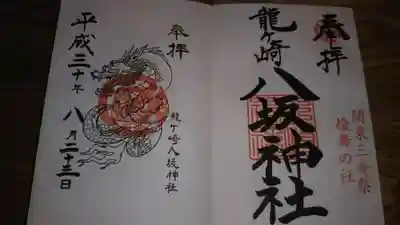 奉拝
龍ヶ崎
八坂神社
関東三奇祭
撞舞の社
奉拝
龍ヶ崎八坂神社
平成三十年
八月二十三日